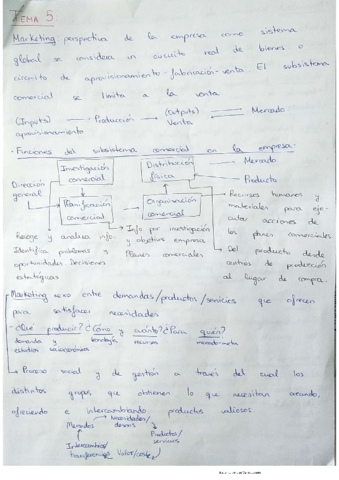 TEMA 5:
Marketing perspectiva de la empresa como sistema
global se considera un circuito real de bienes o
circuito de aprovisionamiento-fabricación-venta El subsistema
comercial se limita a la venta
(Inputs) Producción (Outputs) Mercado
aprovisionamiento Venta
- Funciones del subsistema comercial en la empresa:
Investigación comercial
Distribución física
Mercado
Producto
Dirección general
Planificación comercial
Organización comercial
Recursos humanos y
materiales para eje-
cutar acciones de
los planes comerciales
Recoge y analiza info
Identifica problemas y
oportunidades Decisiones
estratégicas
Info por investigación
y objetivos empresa
Planes comerciales
Del producto desde
centros de producción
al lugar de compra.
Marketing nexo entre demandas/productos/servicios que ofrecen
para satisfacer necesidades
- ¿Qué producir? ¿Cómo y cuánto? ¿Para quién?
demanda y tecnología recursos mercado-meta
estudios socioeconómicos
Proceso social y de gestión a través del cual los
distintos grupos que obtienen lo que necesitan creando,
ofreciendo e intercambiando productos valiosos
Necesidades/
Mercados deseos
Productos/
servicios
Intercambio/
transferencias Valor/coste